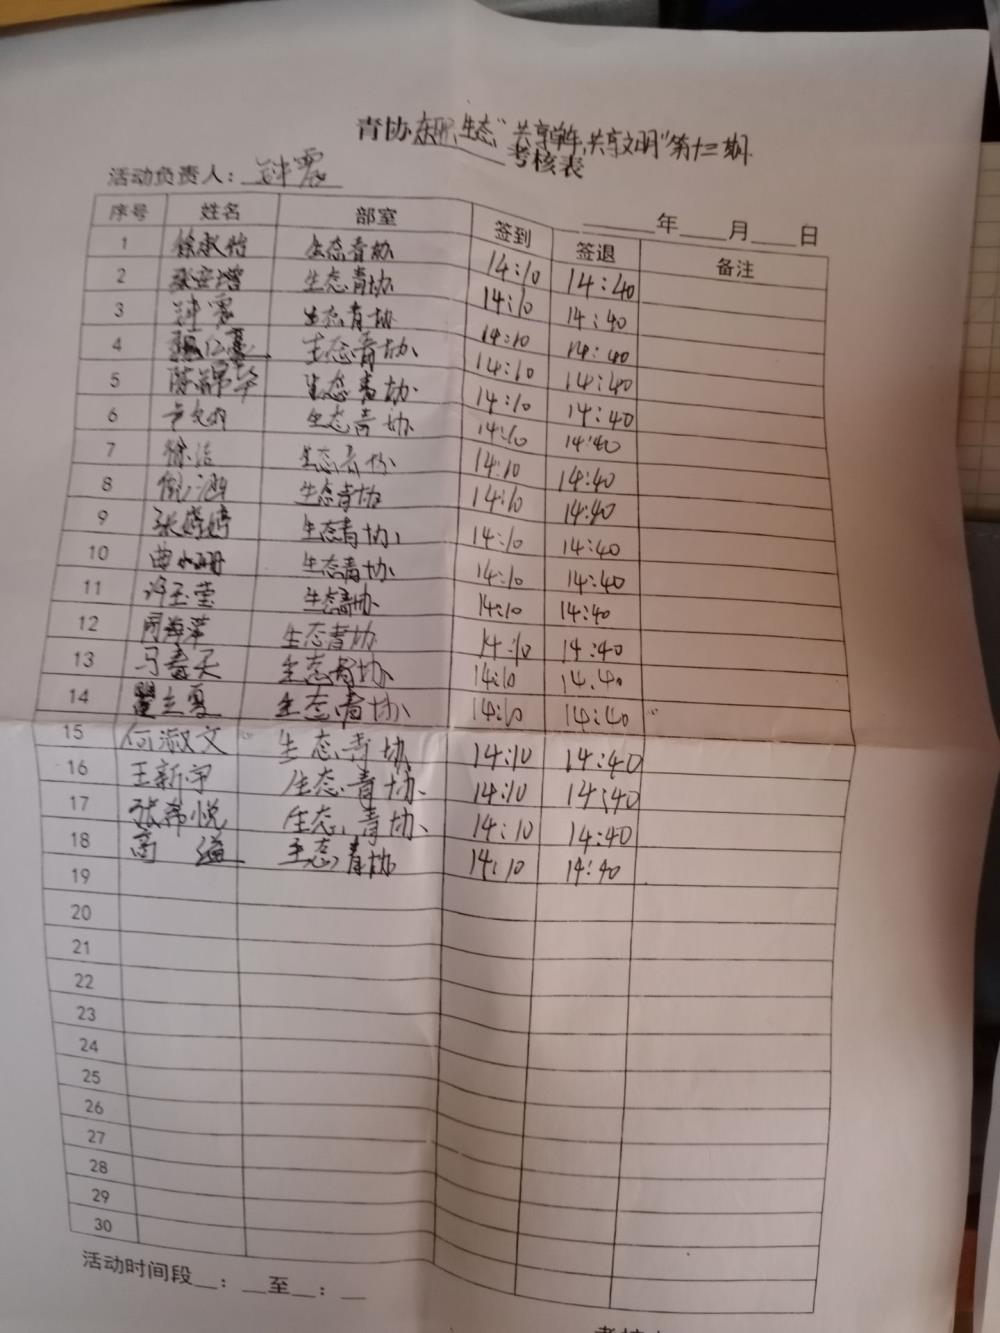 青协 生态"共享单车,共享文明"第十三期
考核表
活动负责人: 钟震
____年____月____日
序号 姓名 部室 签到 签退 备注
1 生态青协 14:10 14:40
2 生态青协 14:10 14:40
3 钟震 生态青协 14:10 14:40
4 生态青协 14:10 14:40
5 陈锦华 生态青协 14:10 14:40
6 生态青协 14:10 14:40
7 徐洁 生态青协 14:10 14:40
8 倪 生态青协 14:10 14:40
9 张婷婷 生态青协 14:10 14:40
10 曲小珊 生态青协 14:10 14:40
11 许玉莹 生态青协 14:10 14:40
12 周海萍 生态青协 14:10 14:40
13 马春天 生态青协 14:10 14:40
14 瞿立夏 生态青协 14:10 14:40
15 何淑文 生态青协 14:10 14:40
16 王新宇 生态青协 14:10 14:40
17 张希悦 生态青协 14:10 14:40
18 高 生态青协 14:10 14:40
19
20
21
22
23
24
25
26
27
28
29
30
活动时间段__:__至__:__